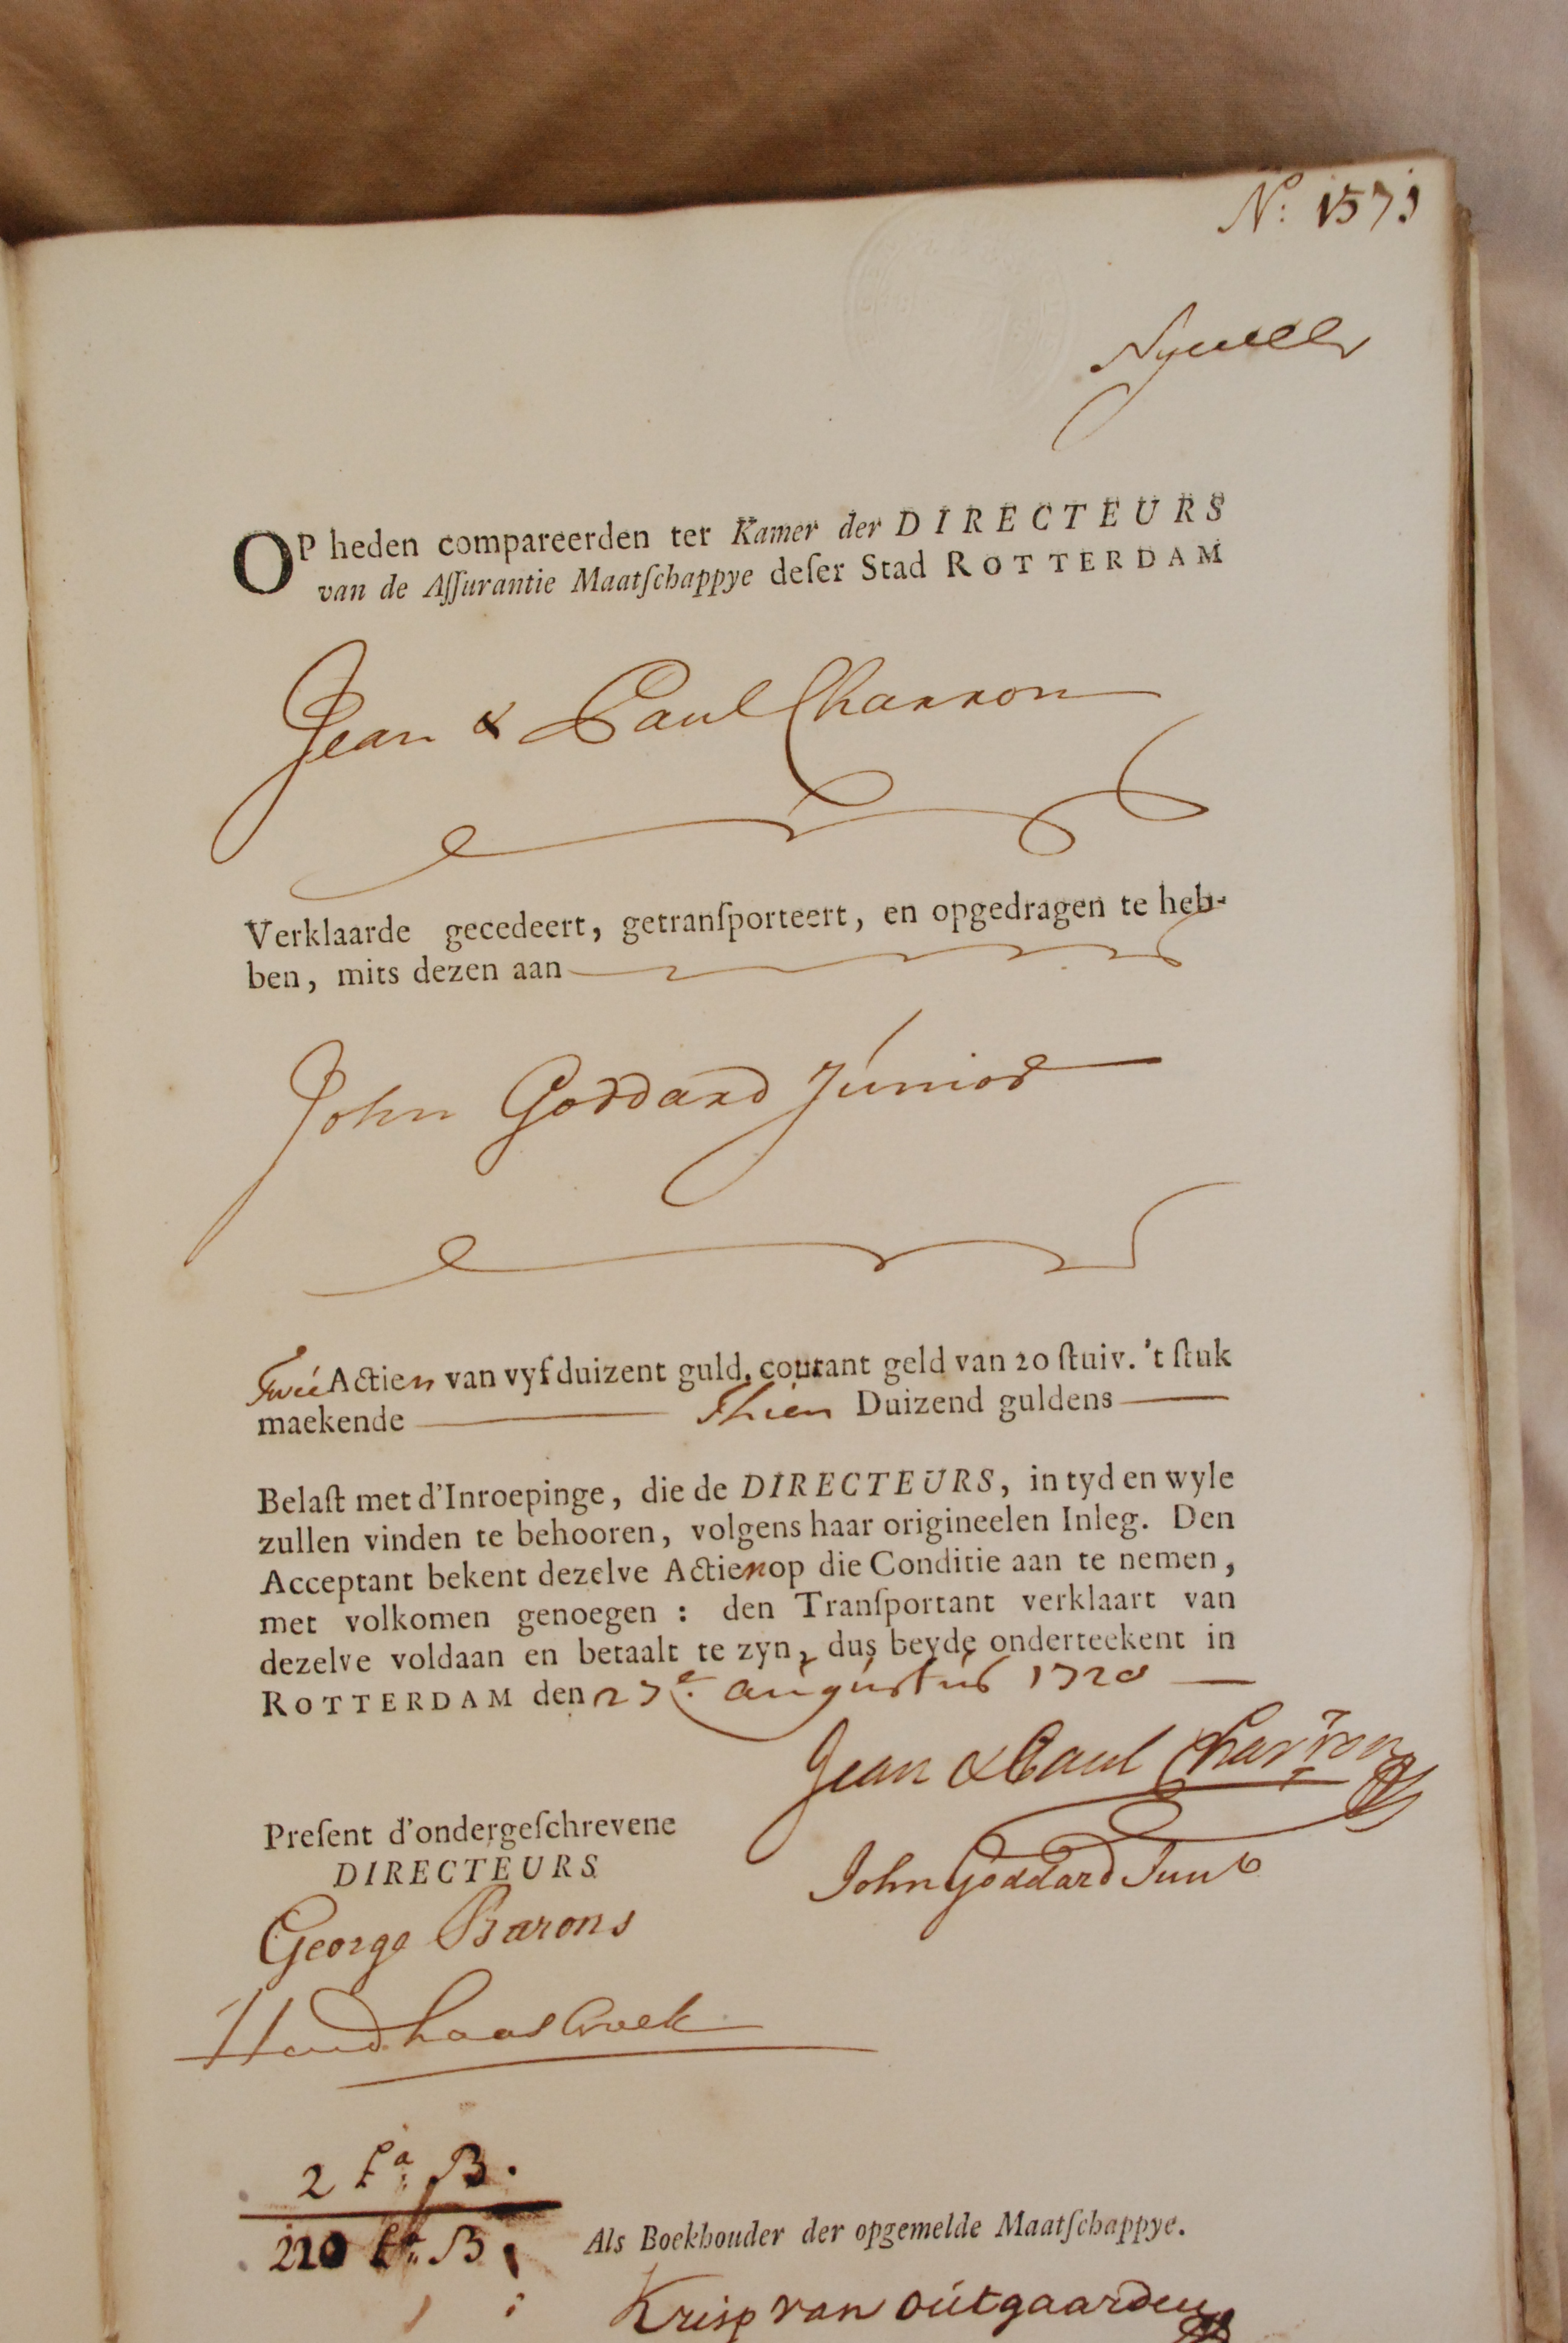 No: 1571
OP heden compareerden ter Kamer der DIRECTEURS
van de Aſſurantie Maatſchappye deſer Stad ROTTERDAM
Jean & Paul Charron
Verklaarde gecedeert, getranſporteert, en opgedragen te heb-
ben, mits dezen aan
John Goddard Júnior
Twée Actien van vyf duizent guld. courant geld van 20 ſtuiv. 't ſtuk
maekende Thien Duizend guldens
Belaſt met d'Inroepinge, die de DIRECTEURS, in tyd en wyle
zullen vinden te behooren, volgens haar origineelen Inleg. Den
Acceptant bekent dezelve Actien op die Conditie aan te nemen,
met volkomen genoegen : den Tranſportant verklaart van
dezelve voldaan en betaalt te zyn, dus beyde onderteekent in
ROTTERDAM den 27e augústús 1720
Jean & Paul Charron
Preſent d'ondergeſchrevene
DIRECTEURS
John Goddard Junr
George Barons
2 La B.
210 La B
Als Boekhouder der opgemelde Maatſchappye.
Krisp van oútgaarden